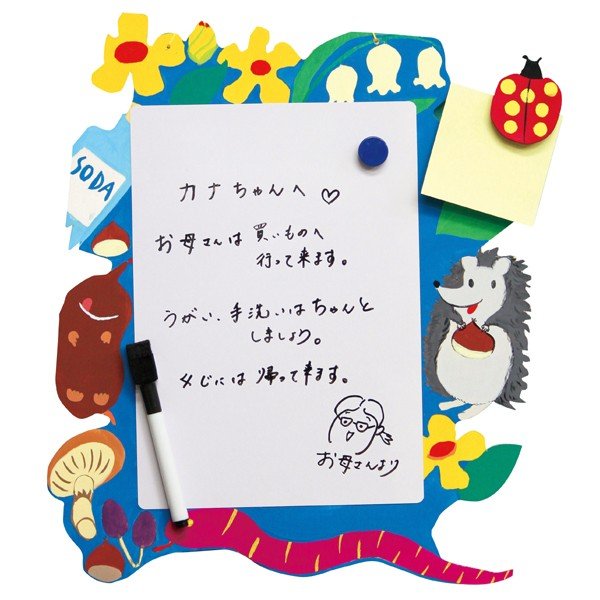 SODA
カナちゃんへ♡
お母さんは 買いものへ
行って来ます。
うがい、手洗いはちゃんと
しましょう。
4じには 帰って来ます。
お母さんより